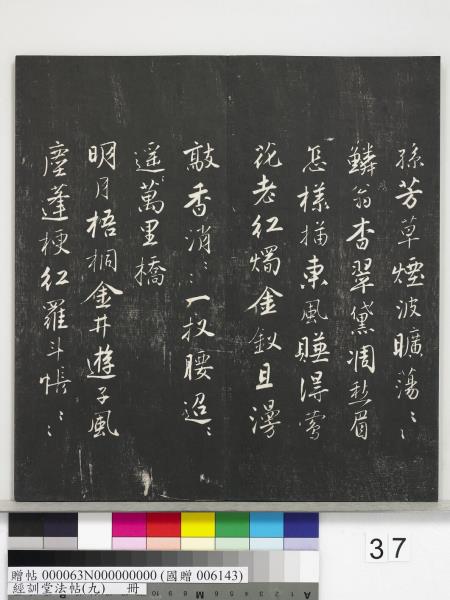 孫芳草煙波曠蕩〻〻
鱗翁杳翠黛凋愁眉
怎樣描東風賺得鶯
花老紅燭金釵且漫
敲香消〻一杈腰迢〻
遥萬里橋
明月梧桐金井遊子風
塵蓬梗紅羅斗帳〻〻
37
贈帖 000063N000000000 (國贈 006143)
經訓堂法帖(九) 冊